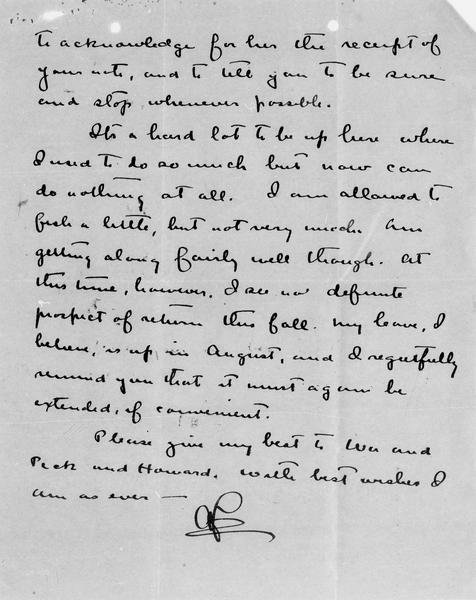 to acknowledge for her the receipt of
your note, and to tell you to be sure
and stop whenever possible.
Its a hard lot to be up here where
I used to do so much but now can
do nothing at all. I am allowed to
fish a little, but not very much. Am
getting along fairly well though. At
this time, however, I see no definite
prospect of return this fall. My leave, I
believe, is up in August, and I regretfully
remind you that it must again be
extended, if convenient.
Please give my best to and
Peck and Howard. With best wishes I
am as ever —